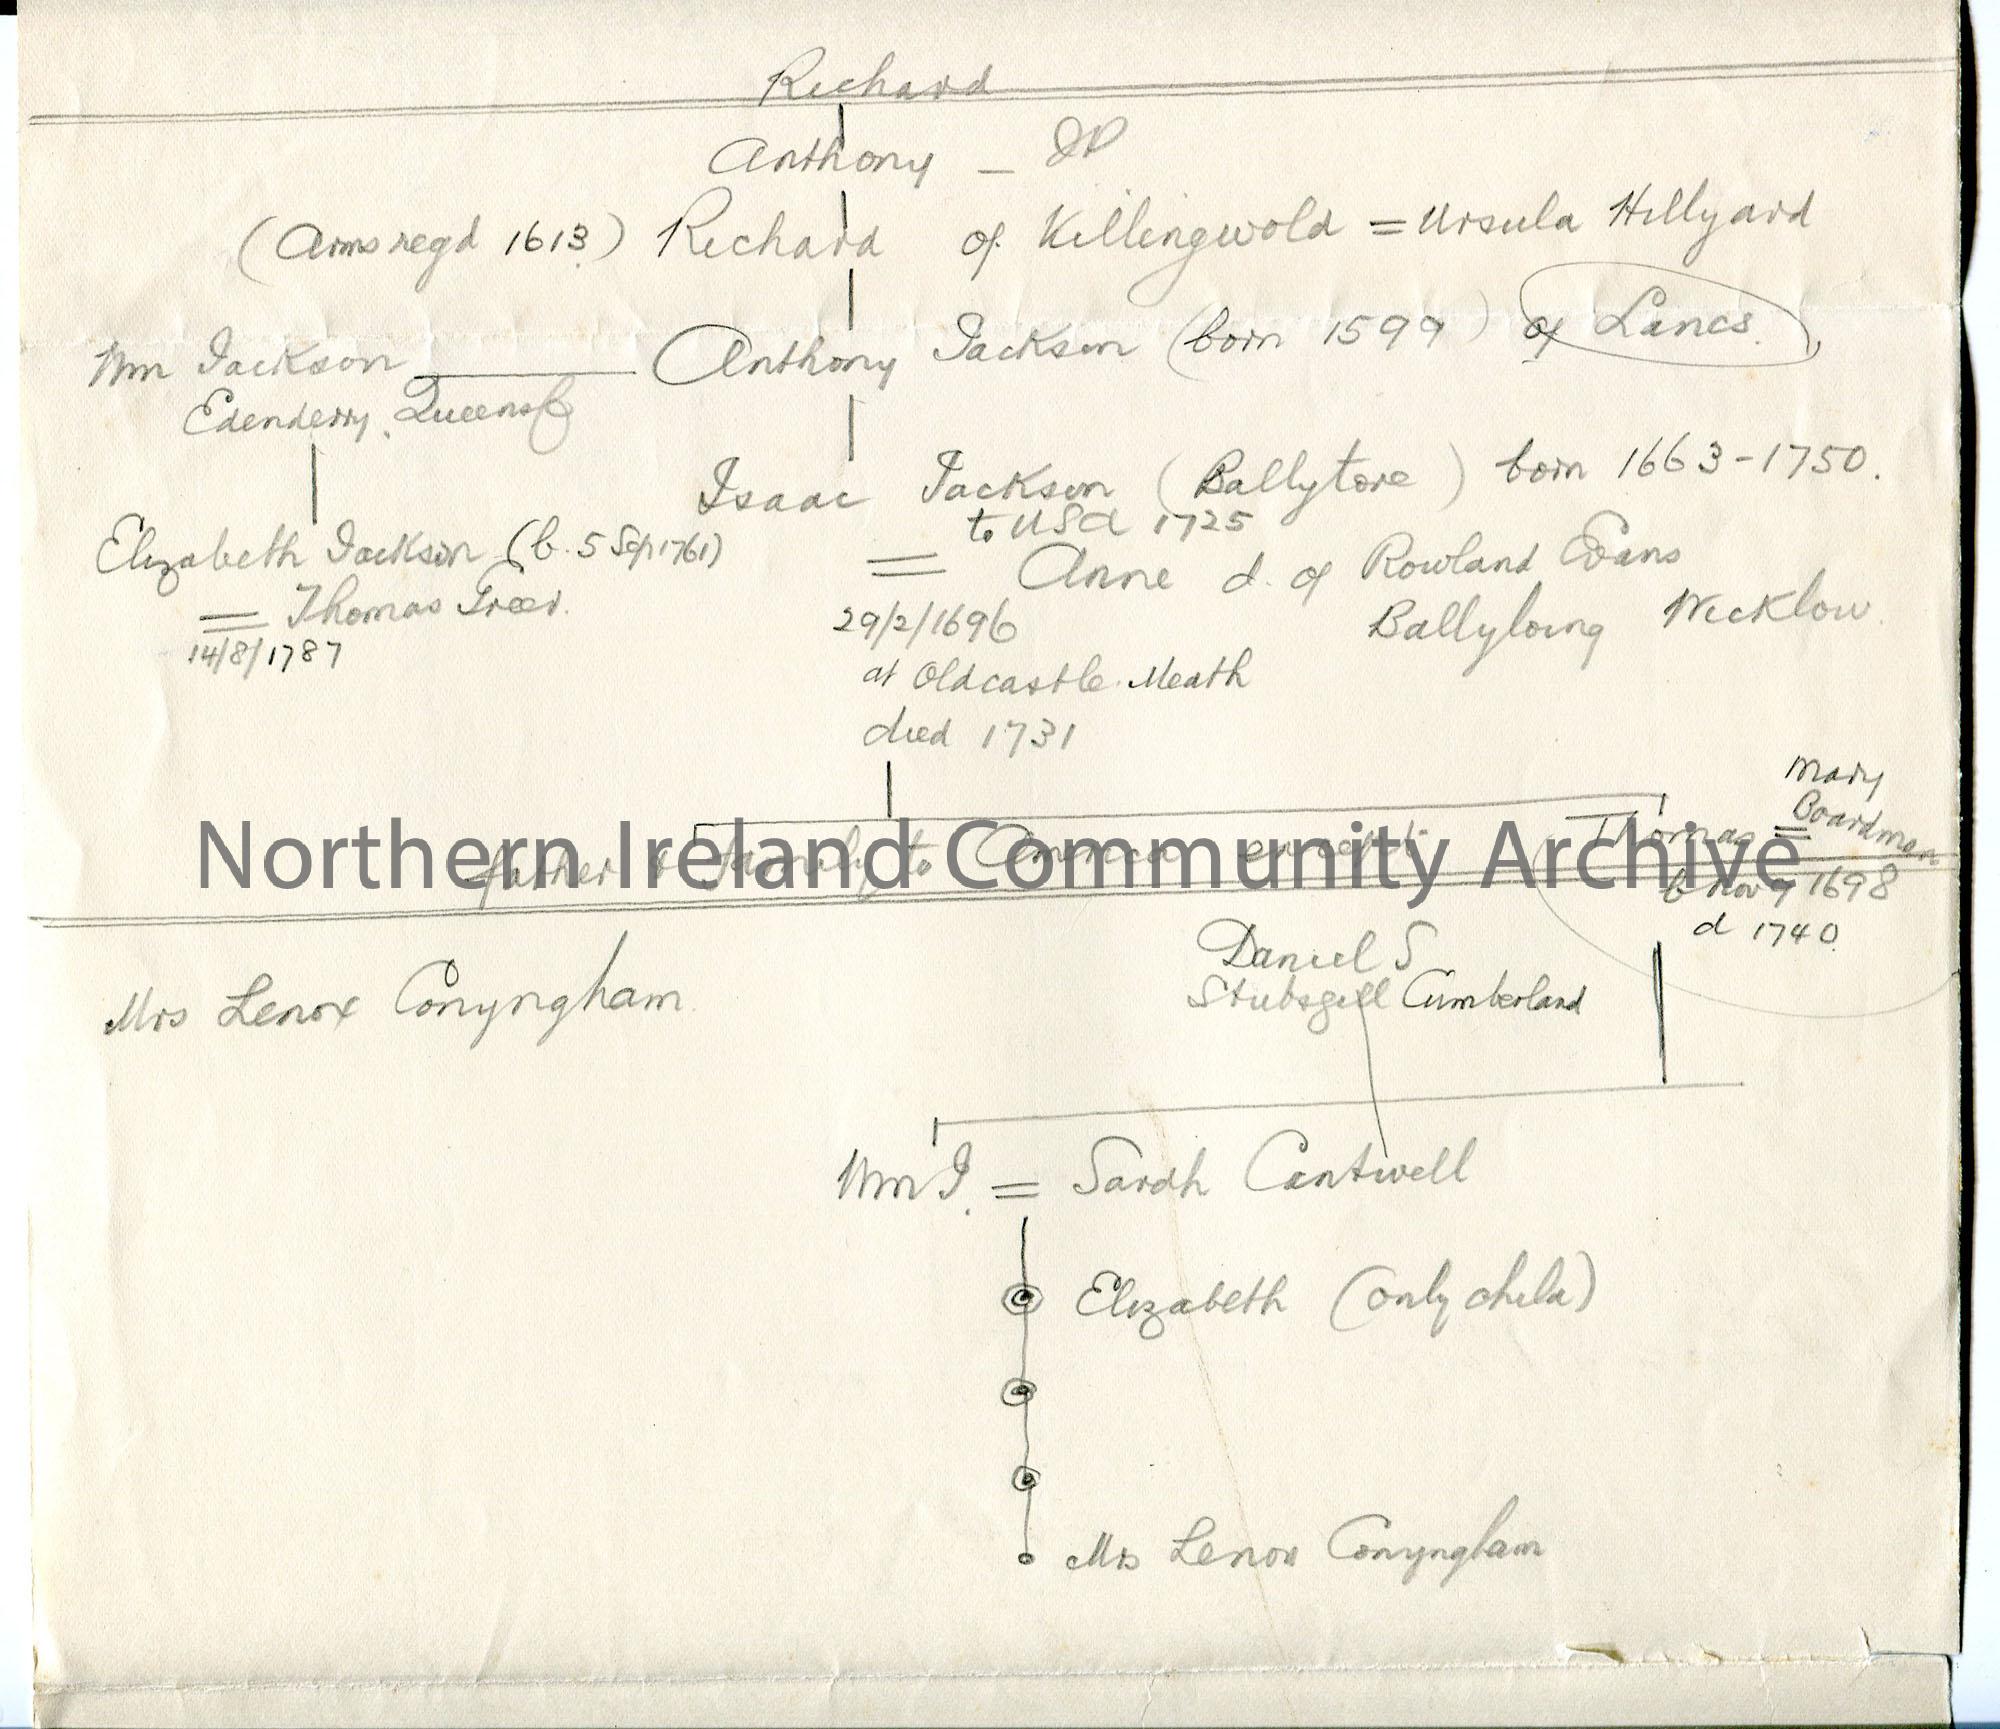 Richard
Anthony — JP
(Arms regd 1613) Richard of Killingwold = Ursula Hillyard
Wm Jackson — Anthony Jackson (born 1599) of Lancs.
Edenderry, Queens Co
Isaac Jackson (Ballytore) born 1663-1750.
to USA 1725
Elizabeth Jackson (b. 5 Sep 1761)
= Anne d. of Rowland Evans
= Thomas Greer.
Ballyloing Wicklow.
14/8/1787
29/2/1696
at Oldcastle. Meath
died 1731
Mary
Boardman
father & family to America except Thomas =
Northern Ireland Community Archive
b Nov 9 1698
d 1740.
Daniel S
Stubsgill Cumberland
Mrs Lenox Conyngham
Wm J. = Sarah Cantwell
Elizabeth (only child)
Mrs Lenox Conyngham